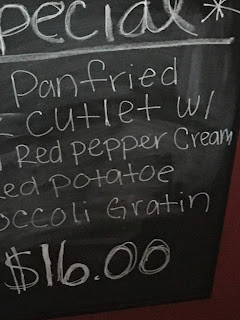 pecial*
Panfried
Cutlet w/
Red Pepper Cream
ed potatoe
occoli Gratin
$16.00